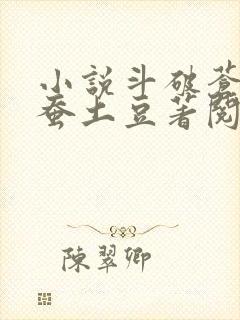 小説斗破蒼
蚕土豆著閱
陳翠卿